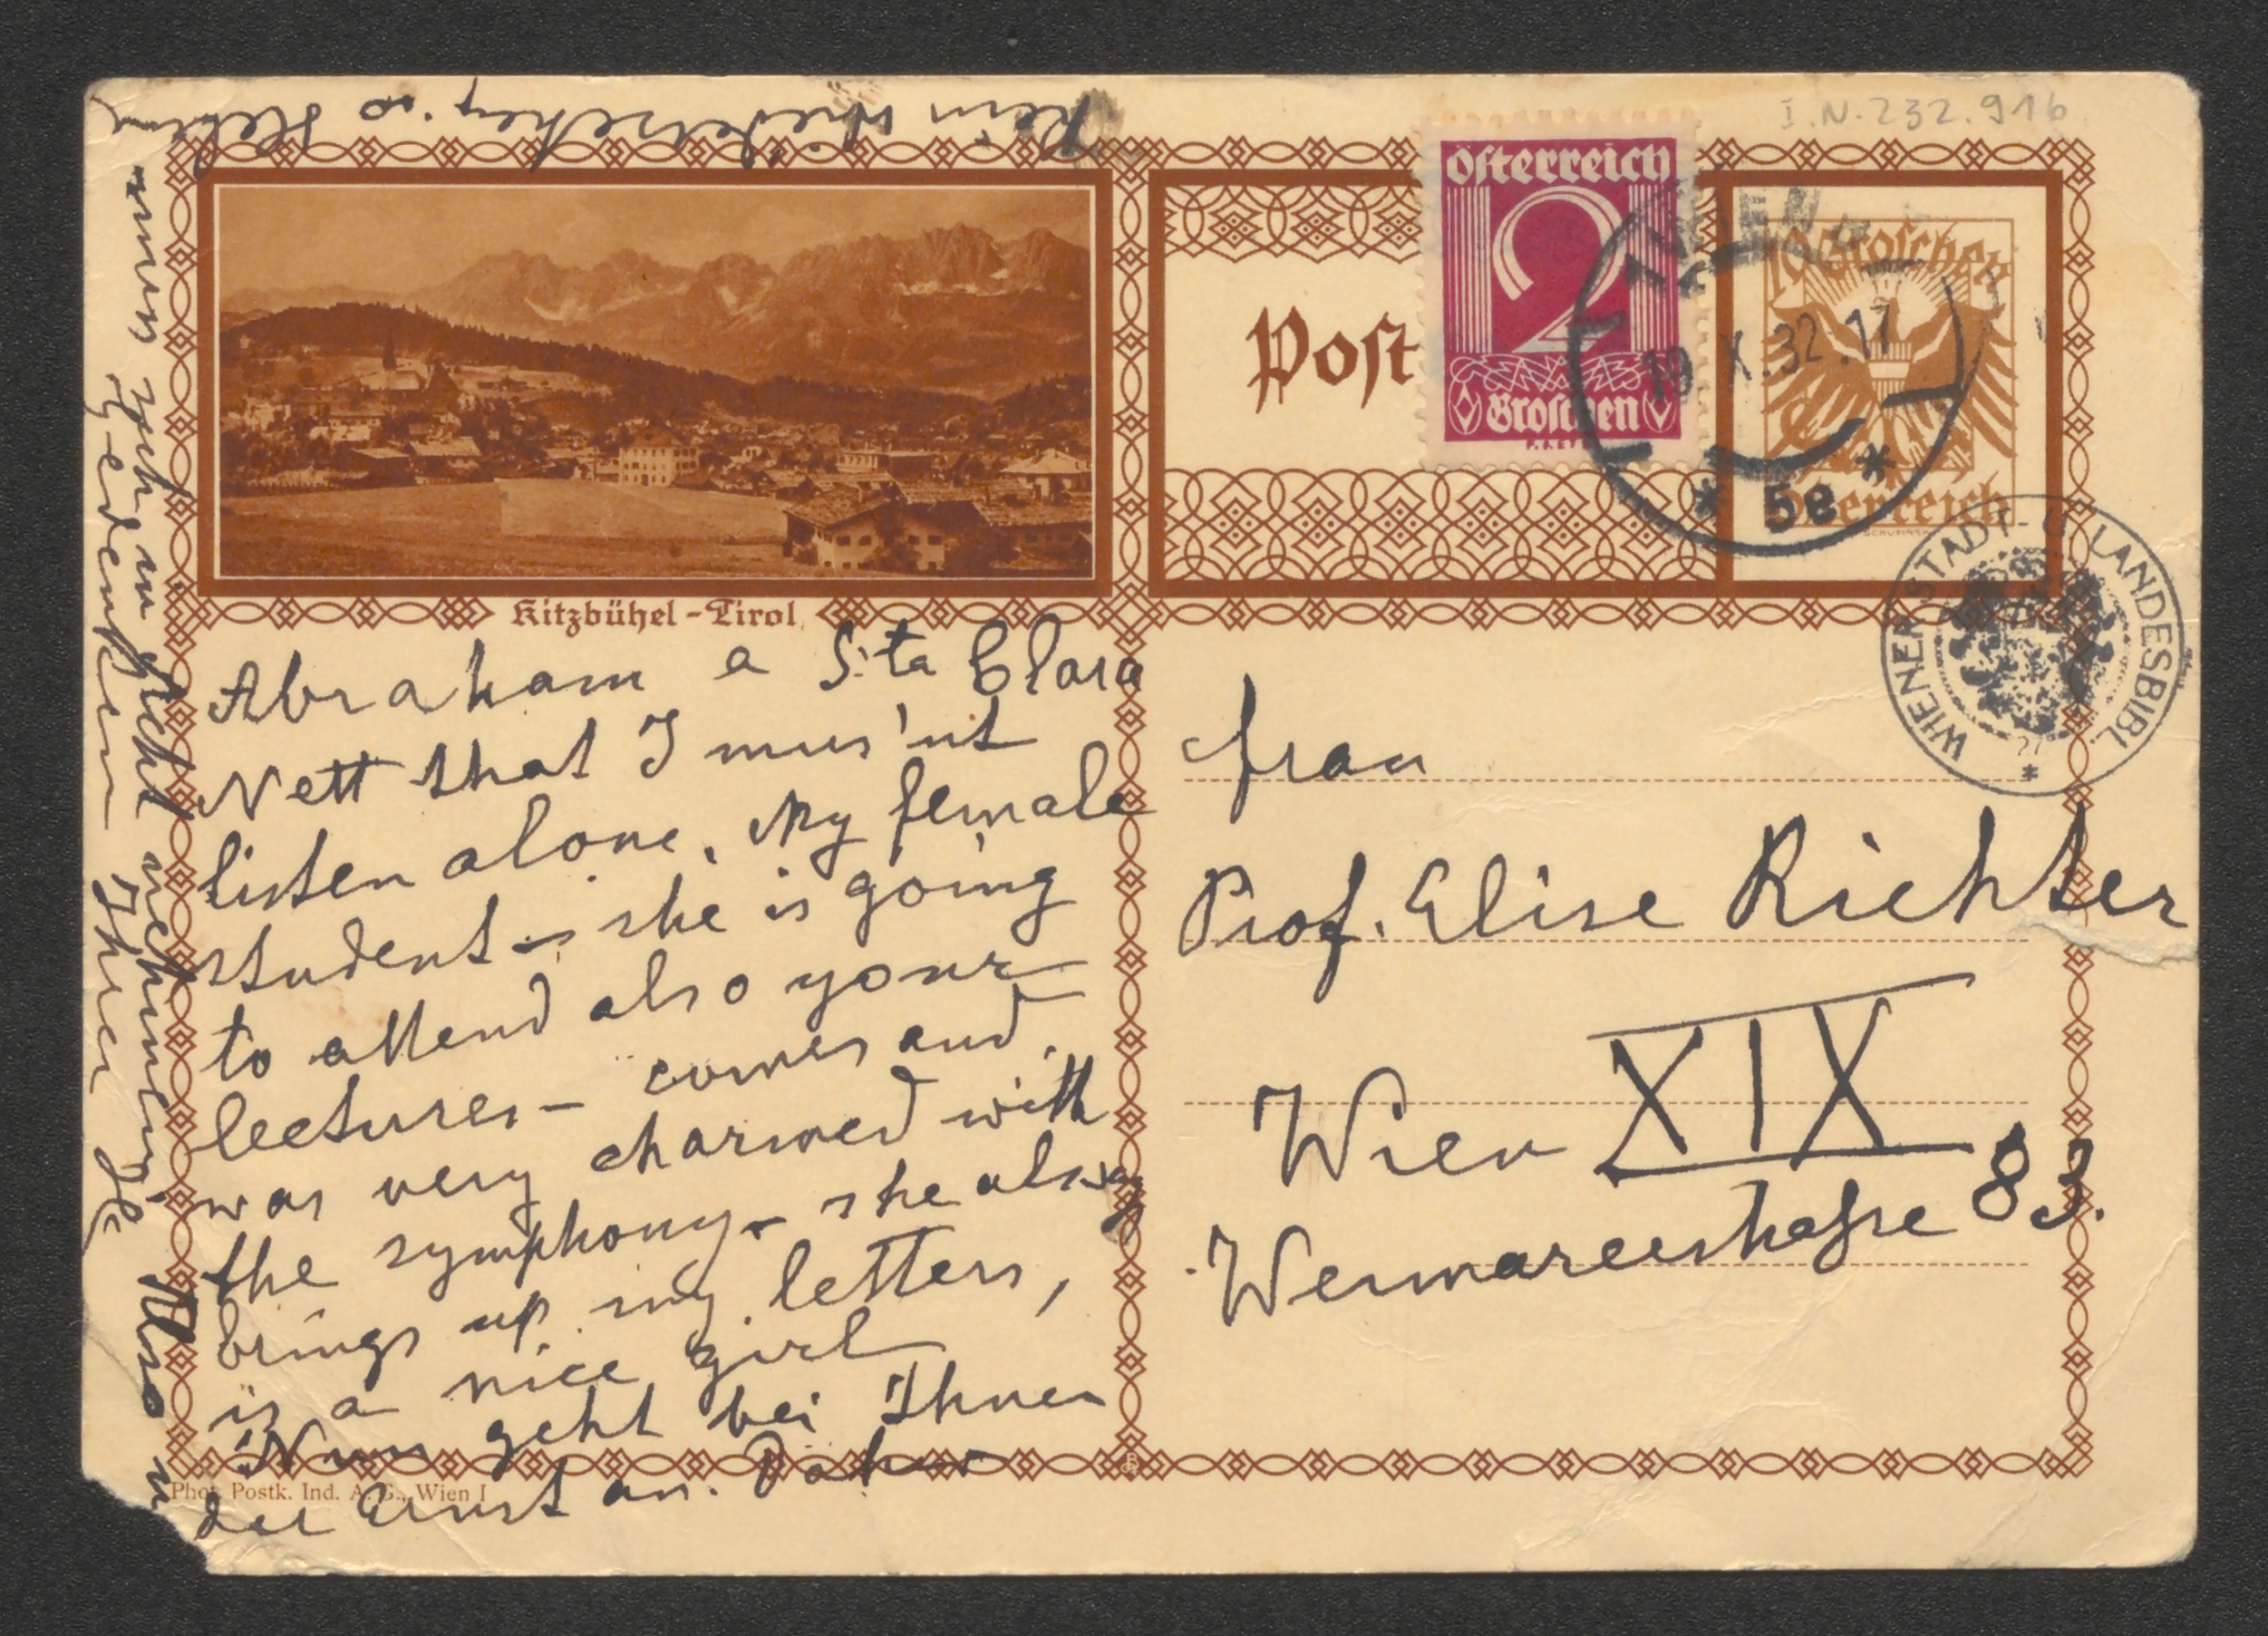 I.N. 232.916
Österreich
2
Groschen
Post
WIEN
19.X.32.17
* 5e *
10 Groschen
Österreich
WIENER STADT- U. LANDESBIBL.
Kitzbühel-Tirol
Abraham a S:ta Clara
Nett that I mus'nt
listen alone. My female
student – she is going
to attend also your
lectures – comes and
was very charmed with
the symphony – she always
brings up my letters,
is a nice girl
Nun geht bei Ihnen
der Ernst an. Daher
kein Wiedersehen, so
mich in Acht nehmen, Also
Gedenken Ihrer
Frau
Prof. Elise Richter
Wien XIX
Weimarerstraße 83.
Phot. Postk. Ind. A. G., Wien I